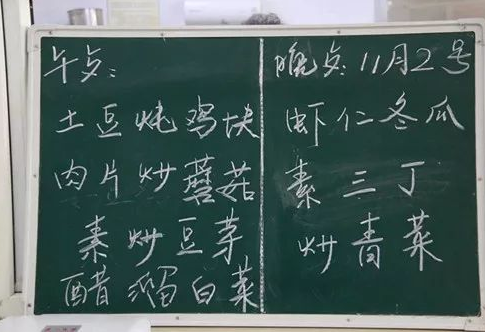 午点:
土豆炖鸡块
肉片炒蘑菇
素炒豆芽
醋溜白菜
晚点:11月2号
虾仁冬瓜
素三丁
炒青菜